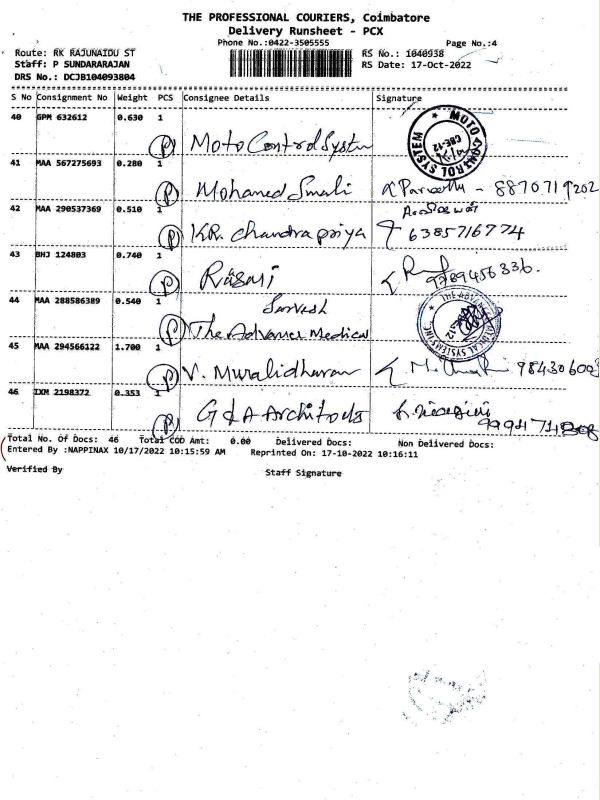 THE PROFESSIONAL COURIERS, Coimbatore
Delivery Runsheet - PCX
Phone No.:0422-3505555
Page No.:4
Route: RK RAJUNAIDU ST
RS No.: 1040938
Staff: P SUNDARARAJAN
RS Date: 17-Oct-2022
DRS No.: DCJB104093804
S No Consignment No Weight PCS Consignee Details Signature
40 GPM 632612 0.630 1
P Moto Control System
MOTO CONTROL SYSTEM CBE-12
41 MAA 567275693 0.280 1
P Mohamed - 8870719202
42 MAA 290537369 0.510 1
P KR. Chandra priya 6385716774
43 BHJ 124803 0.740 1
9789456336.
44 MAA 288586389 0.540 1
Sarvesh
P The Advance Medical
THE ADVANCE MEDICAL SYSTEMS INC.
45 MAA 294566122 1.700 1
P V. Muralidharan
46 IXM 2198372 0.353 1
P G & A Architects
Total No. Of Docs: 46 Total COD Amt: 0.00 Delivered Docs: Non Delivered Docs:
Entered By :NAPPINAX 10/17/2022 10:15:59 AM Reprinted On: 17-10-2022 10:16:11
Verified By Staff Signature